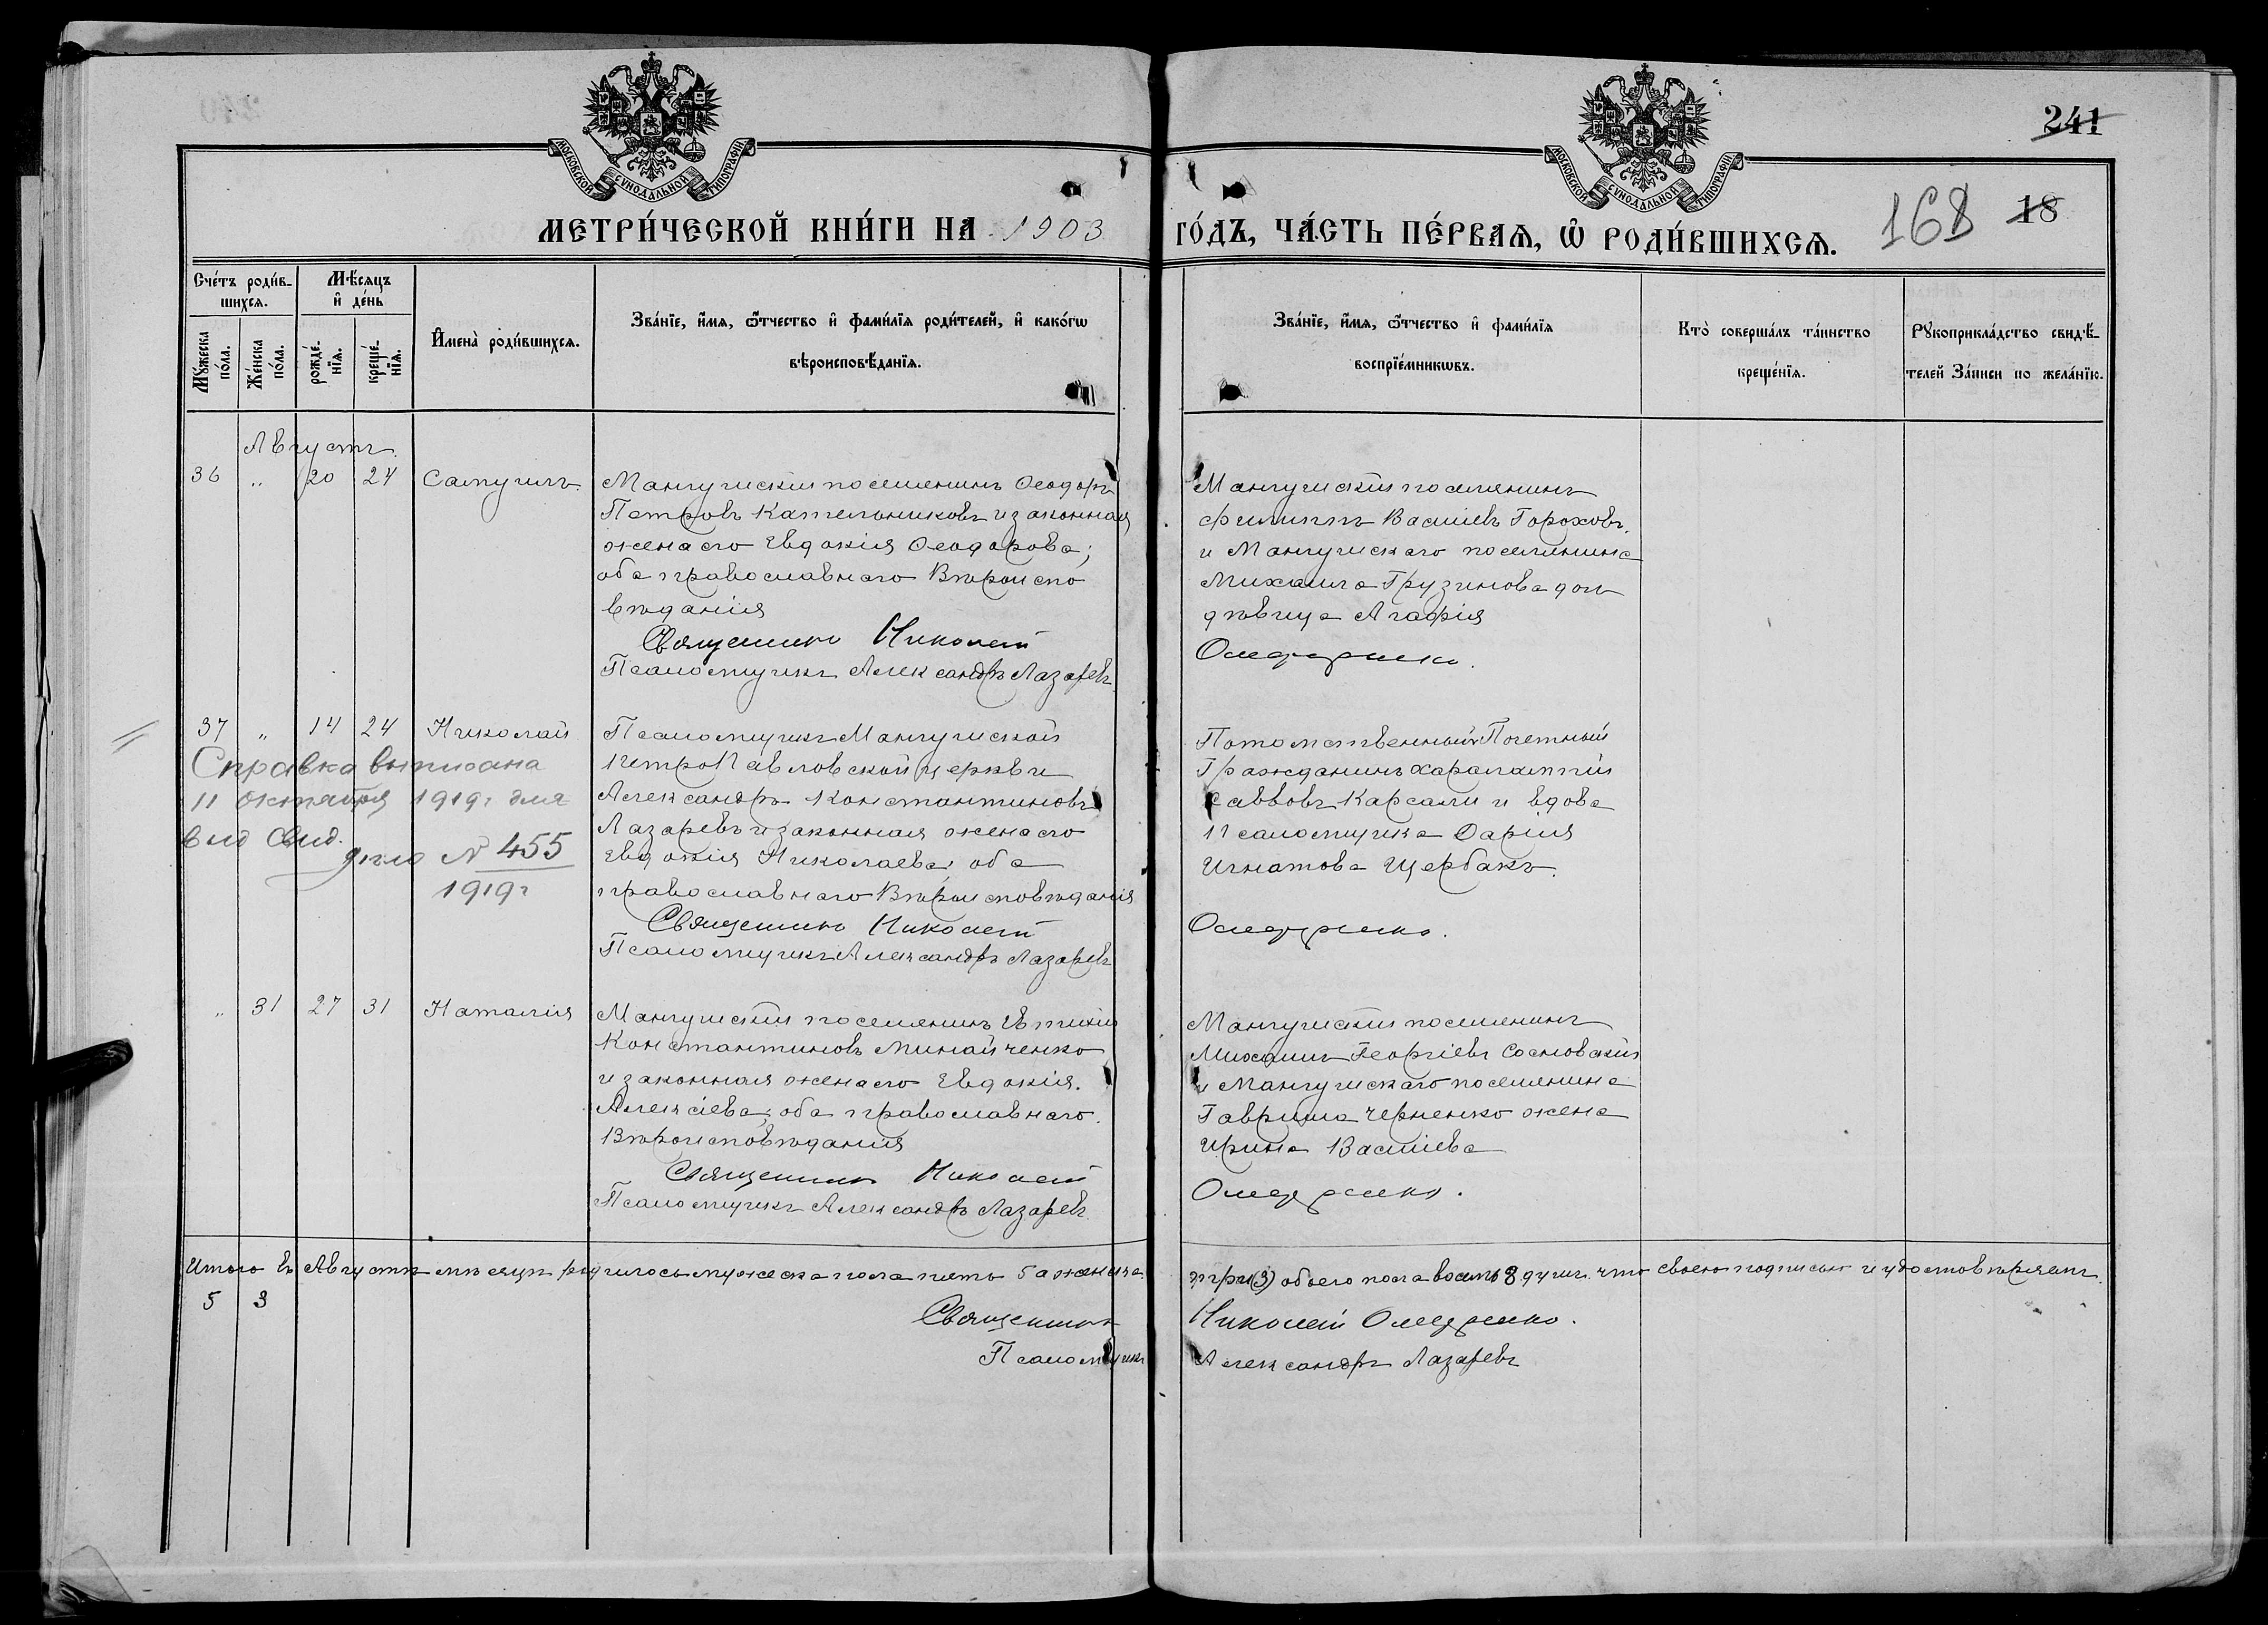 МОСКОВСКОЙ СѴНОДАЛЬНОЙ ТИПОГРАФІИ
МОСКОВСКОЙ СѴНОДАЛЬНОЙ ТИПОГРАФІИ
241
МЕТРИ́ЧЕСКОЙ КНИ́ГИ НА 1903 ГО́ДЪ, ЧА́СТЬ ПЕ́РВАѦ, Ѡ҆ РОДИ́ВШИХСѦ.
168 18
Сче́тъ роди́в-
шихсѧ.
Мѣ́сѧцъ
и҆ де́нь
Мꙋ́жеска
по́ла.
Же́нска
по́ла.
рожде́-
нїѧ.
креще́-
нїѧ.
И҆мена̀ роди́вшихсѧ.
Зва́нїе, и҆́мѧ, ѻ҆́тчество и҆ фами́лїѧ роди́телей, и҆ како́гѡ
вѣроисповѣ́данїѧ.
Зва́нїе, и҆́мѧ, ѻ҆́тчество и҆ фами́лїѧ
воспрїе́мникѡвъ.
Кто̀ соверша́лъ та́инство
креще́нїѧ.
Рꙋкоприкла́дство свидѣ́-
телей За́писи по жела́нїю.
Августъ.
36 " 20 24 Самуилъ.
Мангушскій поселянинъ Ѳеодоръ
Петровъ Кательниковъ и законная
жена его Евдокія Ѳеодорова;
оба православнаго Вѣроиспо
вѣданія
Священникъ Николай
Псаломщикъ Александръ Лазаревъ
Мангушскій поселянинъ
Филиппъ Васильевъ Гороховъ.
и Мангушскаго поселянина
Михаила Грузинова дочь
дѣвица Агафія
37 " 14 24 Николай
Псаломщикъ Мангушской
ПетроПавловской церкви
Александръ Константиновъ
Лазаревъ и законная жена его
Евдокія Николаева, оба
православнаго Вѣроисповѣданія
Священникъ Николай
Псаломщикъ Александръ Лазаревъ
Потомственный Почетный
Гражданинъ Харалампій
Саввовъ Карсали и вдова
Псаломщика Дарія
Игнатова Щербакъ.
Справка выписана
11 октября 1919 г для
выд свид.
дѣло № 455
1919 г
" 31 27 31 Наталія
Мангушскій поселянинъ Евтихій
Константиновъ Минайченко
и законная жена его Евдокія.
Алексіева; оба православнаго.
Вѣроисповѣданія
Священникъ Николай
Псаломщикъ Александръ Лазаревъ
Мангушскій поселянинъ
Михаилъ Георгіевъ Сосновскій
и Мангушскаго поселянина
Гавриила Черненко жена
Ирина Василіева
Итого въ Августѣ мѣсяцѣ родилось мужеска пола пять 5 а женска три (3) обоего пола восемь 8 душъ. что своею подписью и удостовѣряемъ.
5 3
Священникъ Николай
Псаломщикъ Александръ Лазаревъ